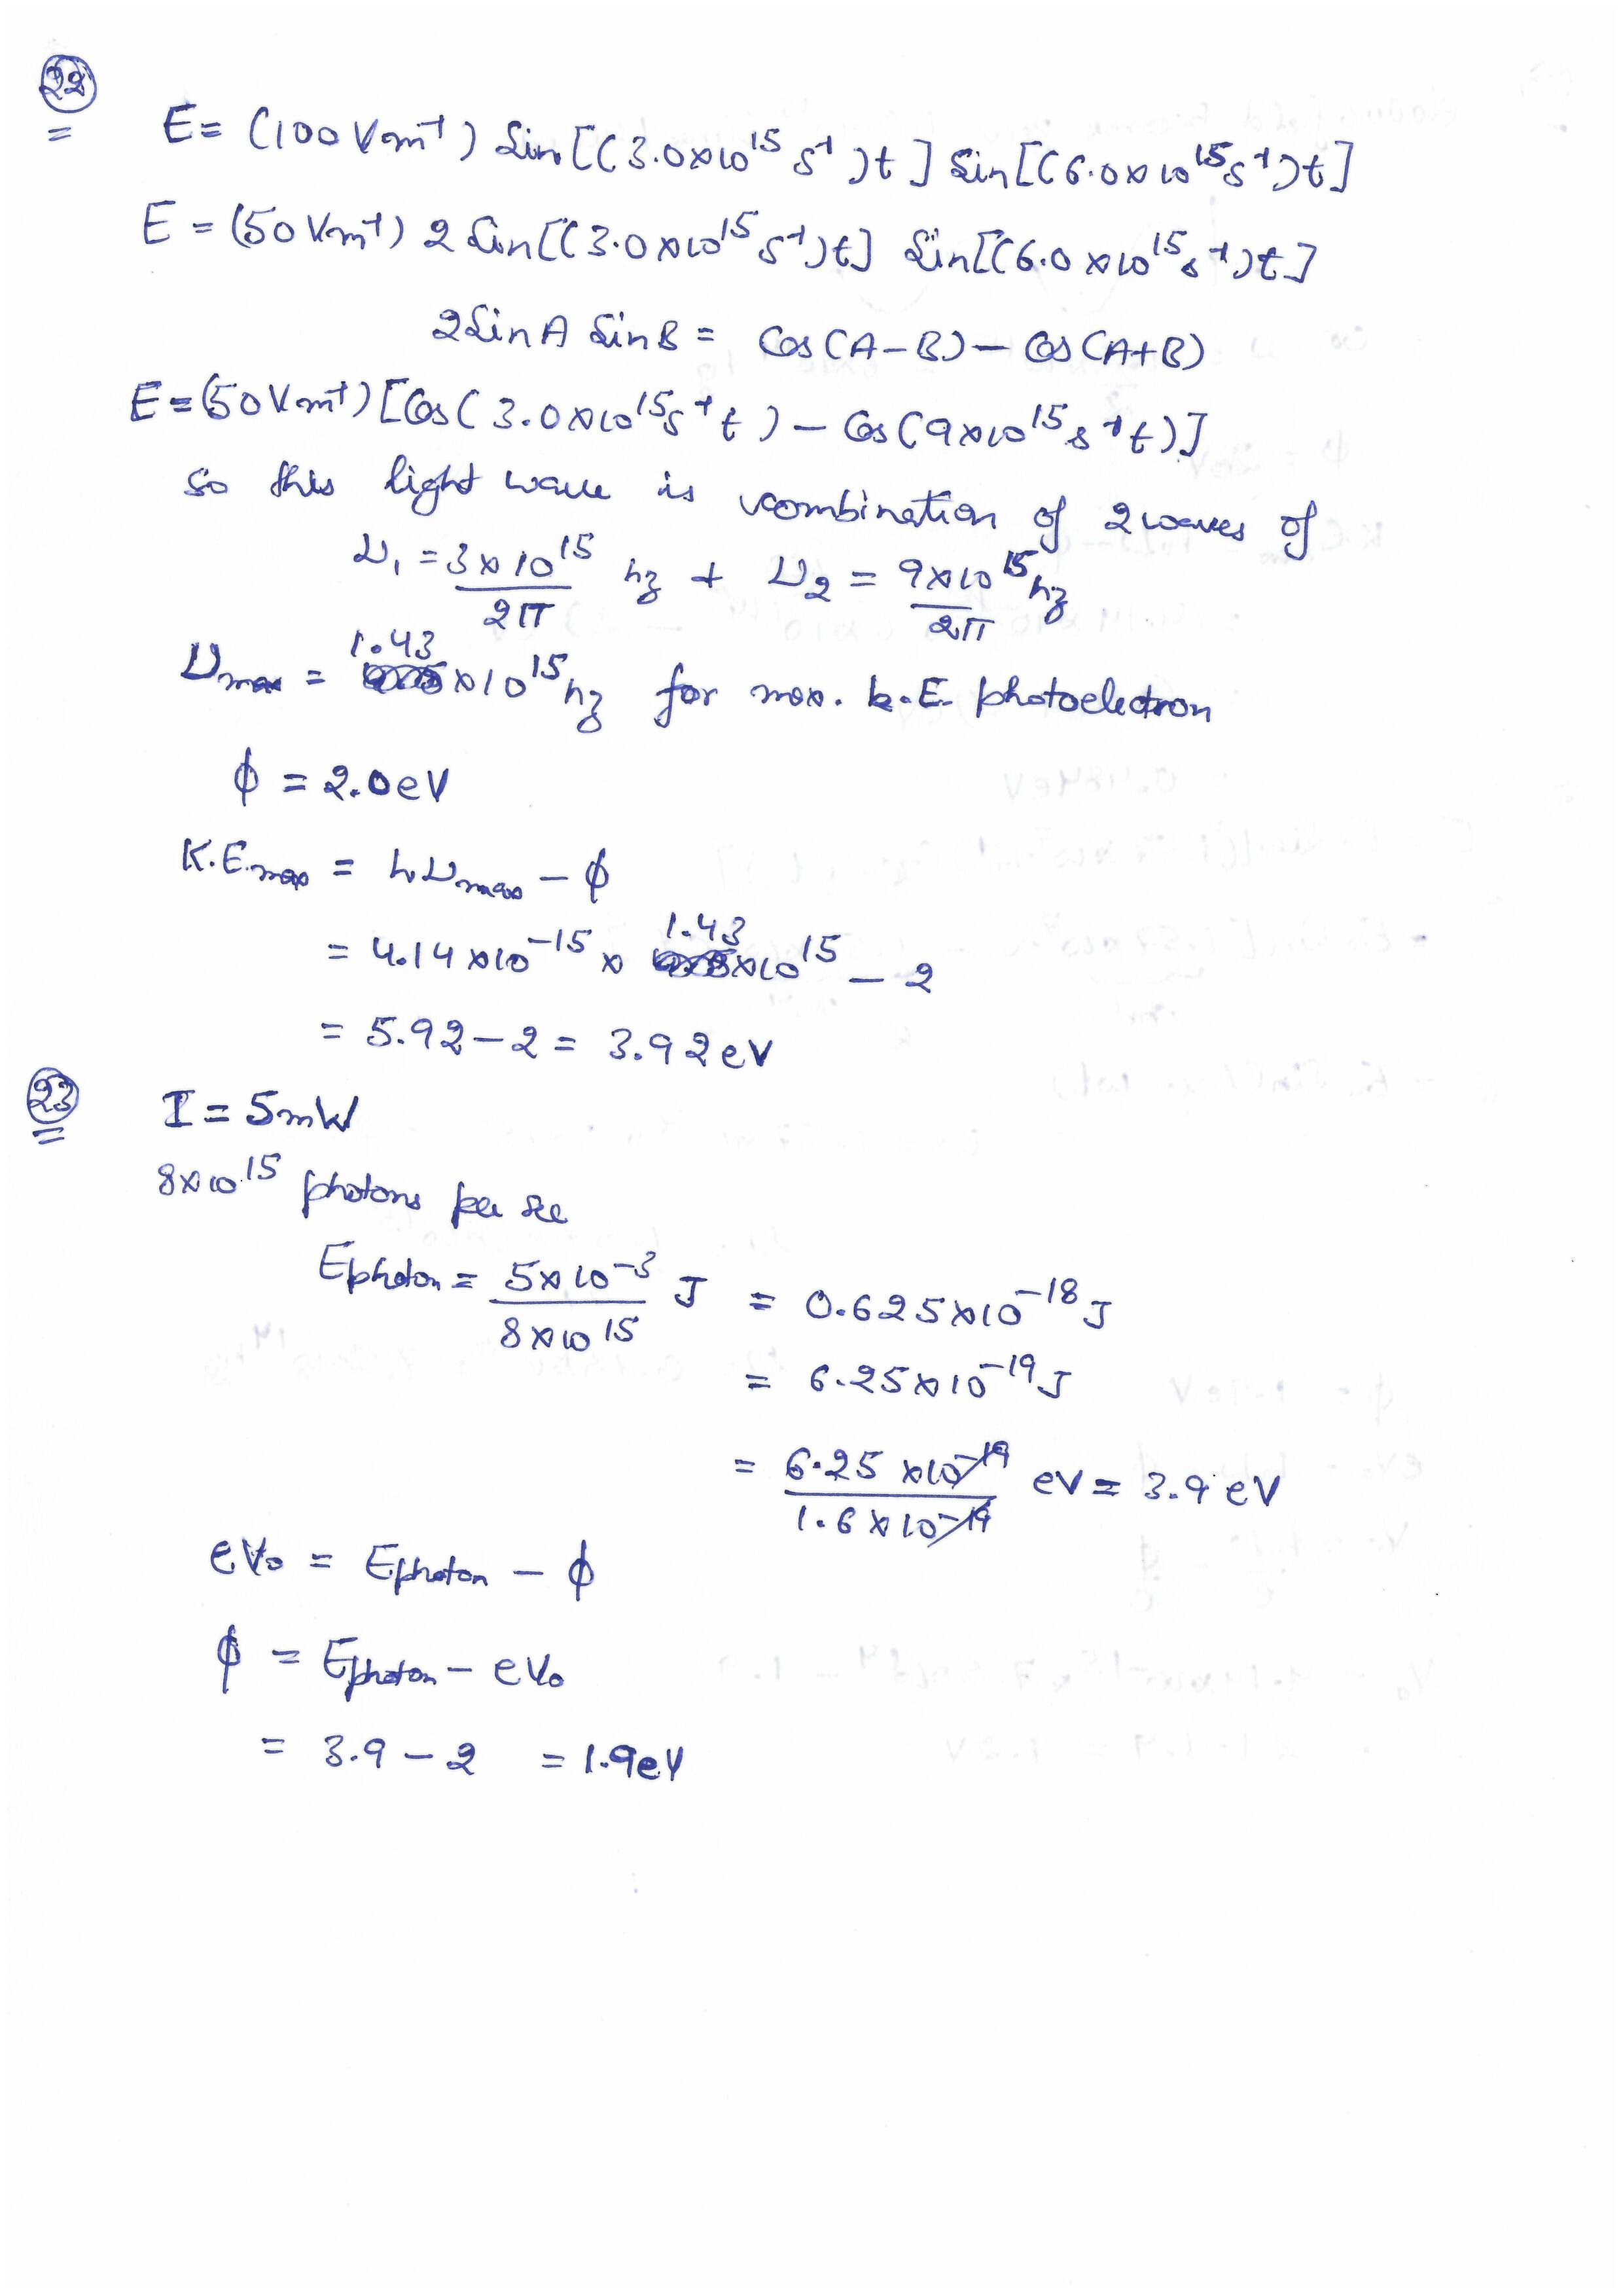 22
E = (100 Vm⁻¹) Sin[(3.0×10¹⁵ s⁻¹)t] Sin[(6.0×10¹⁵ s⁻¹)t]
E = (50 Vm⁻¹) 2 Sin[(3.0×10¹⁵ s⁻¹)t] Sin[(6.0×10¹⁵ s⁻¹)t]
2 Sin A Sin B = Cos(A−B) − Cos(A+B)
E = (50 Vm⁻¹)[Cos(3.0×10¹⁵ s⁻¹ t) − Cos(9×10¹⁵ s⁻¹ t)]
So this light wave is combination of 2 waves of
ν₁ = 3×10¹⁵/2π hz + ν₂ = 9×10¹⁵/2π hz
νmax = 1.43 ×10¹⁵ hz for max. k.E. photoelectron
ϕ = 2.0 eV
K.E.max = hνmax − ϕ
= 4.14×10⁻¹⁵ × 1.43 ×10¹⁵ − 2
= 5.92 − 2 = 3.92 eV
23
I = 5mW
8×10¹⁵ photons per sec
Ephoton = 5×10⁻³/8×10¹⁵ J = 0.625×10⁻¹⁸ J
= 6.25×10⁻¹⁹ J
= 6.25×10⁻¹⁹/1.6×10⁻¹⁹ eV = 3.9 eV
eV₀ = Ephoton − ϕ
ϕ = Ephoton − eV₀
= 3.9 − 2 = 1.9eV